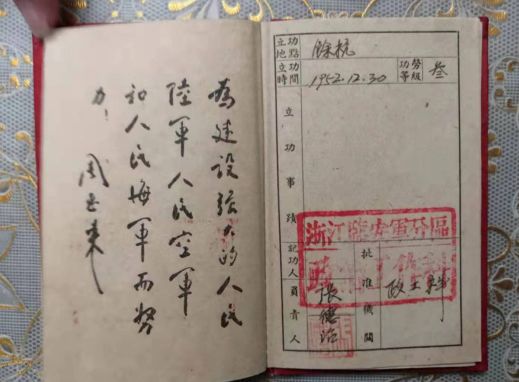 為建設强大的人民
陸軍人民空軍
和人民海軍而努
力！
周恩来
立功地點
餘杭
立功時間
1952.12.30
功勞等級
叁
立功事蹟
浙江臨安軍分區
記功人員責人
張健治
批准機關
政工